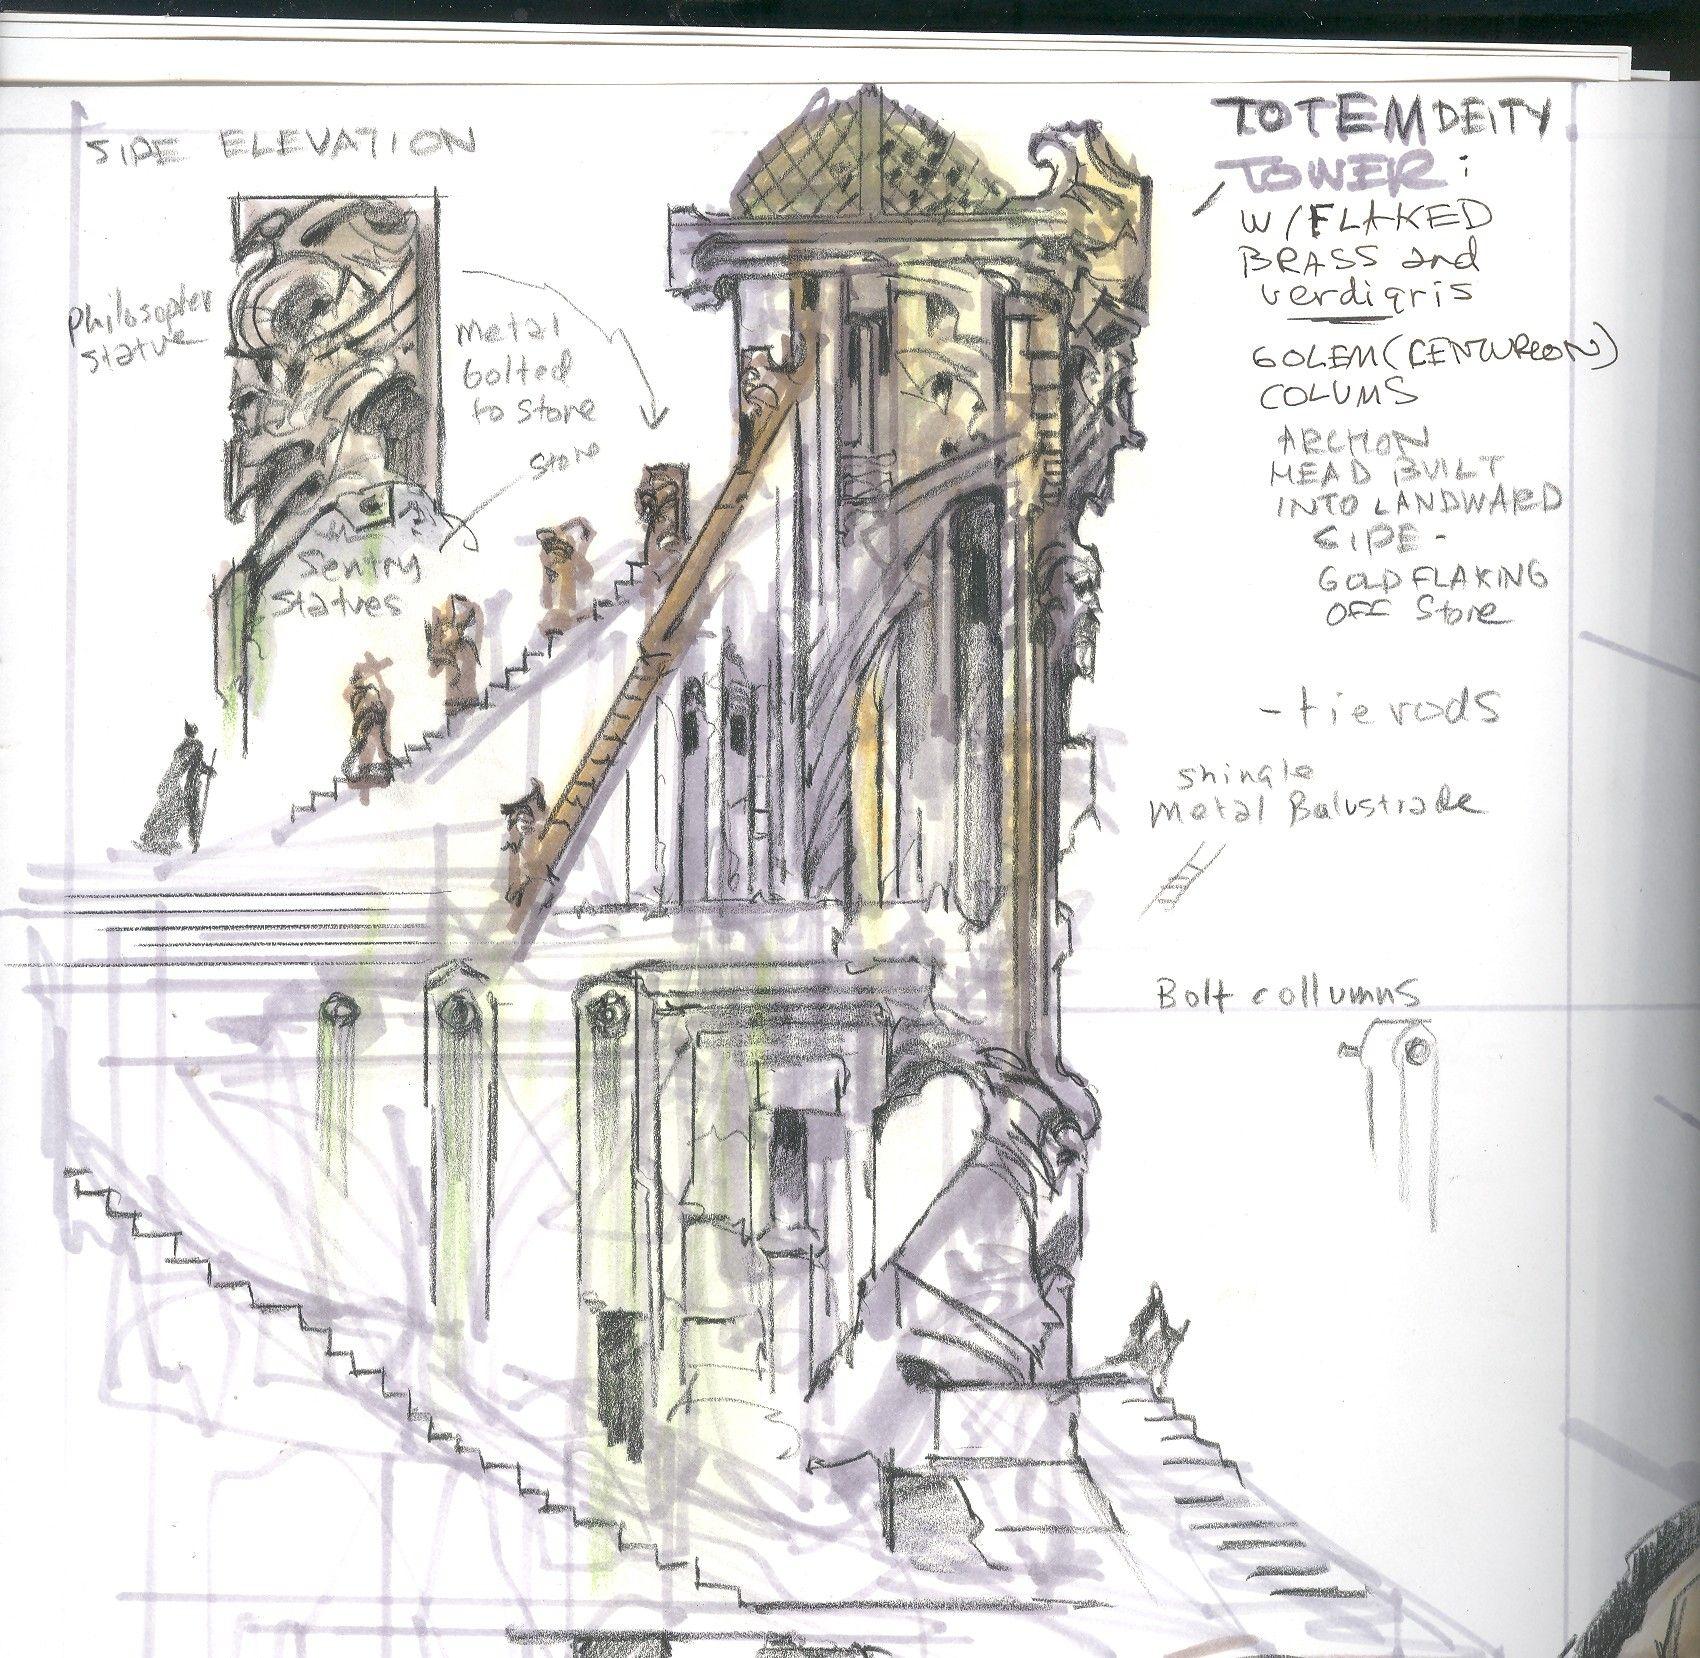 SIDE ELEVATION
Philosopher
statue
metal
bolted
to stone
stone
Sentry
Statues
TOTEM DEITY
TOWER:
W/FLAKED
BRASS and
verdigris
GOLEM (CENTURION)
COLUMS
ARCHON
HEAD BUILT
INTO LANDWARD
SIDE -
GOLD FLAKING
OFF Stone
- tie rods
shingle
metal Balustrade
Bolt collumns